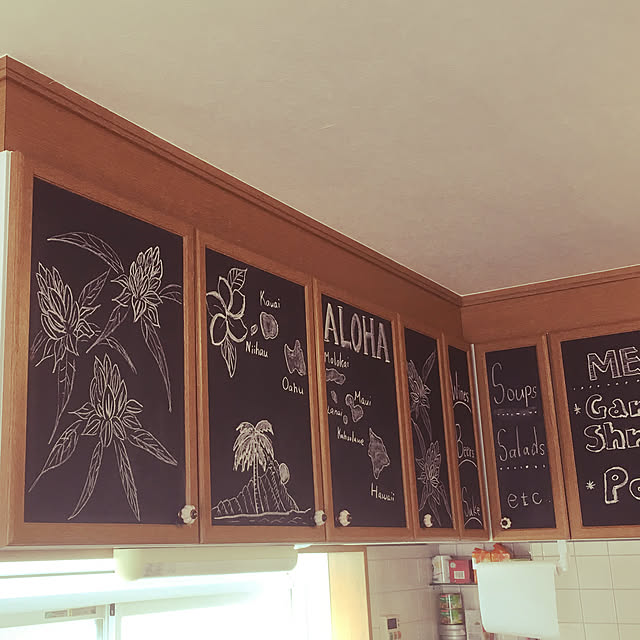 Kauai
Niihau
Oahu
ALOHA
Molokai
Maui
Lanai
Kahoolawe
Hawaii
Wines
Beers
Sake
Soups
Salads
etc
ME
* Gar
Shr
* Po